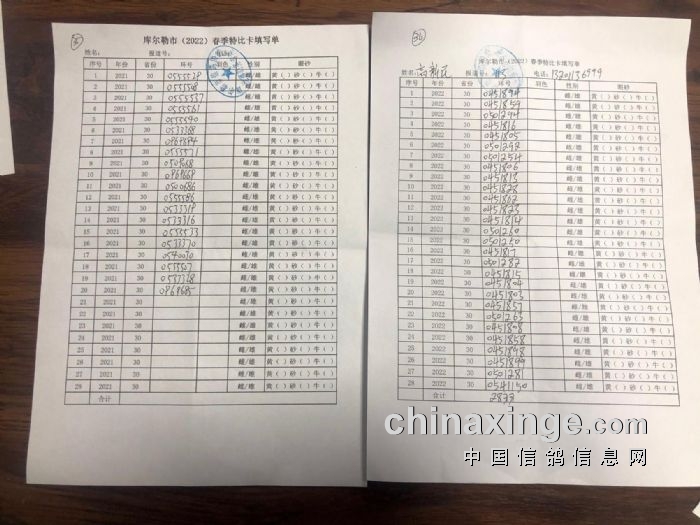 库尔勒市（2022）春季特比卡填写单
姓名： 报道号： 电话：
序号 年份 省份 环号 羽色 性别 眼砂
1 2021 30 0555529 雌/雄 黄（ ）砂（ ）牛（ ）
2 2021 30 雌/雄 黄（ ）砂（ ）牛（ ）
3 2021 30 0555537 雌/雄 黄（ ）砂（ ）牛（ ）
4 2021 30 0555561 雌/雄 黄（ ）砂（ ）牛（ ）
5 2021 30 雌/雄 黄（ ）砂（ ）牛（ ）
6 2021 30 0533368 雌/雄 黄（ ）砂（ ）牛（ ）
7 2021 30 雌/雄 黄（ ）砂（ ）牛（ ）
8 2021 30 0555571 雌/雄 黄（ ）砂（ ）牛（ ）
9 2021 30 雌/雄 黄（ ）砂（ ）牛（ ）
10 2021 30 雌/雄 黄（ ）砂（ ）牛（ ）
11 2021 30 0500686 雌/雄 黄（ ）砂（ ）牛（ ）
12 2021 30 0555586 雌/雄 黄（ ）砂（ ）牛（ ）
13 2021 30 0533319 雌/雄 黄（ ）砂（ ）牛（ ）
14 2021 30 0533316 雌/雄 黄（ ）砂（ ）牛（ ）
15 2021 30 0555533 雌/雄 黄（ ）砂（ ）牛（ ）
16 2021 30 0533370 雌/雄 黄（ ）砂（ ）牛（ ）
17 2021 30 0540030 雌/雄 黄（ ）砂（ ）牛（ ）
18 2021 30 雌/雄 黄（ ）砂（ ）牛（ ）
19 2021 30 0533328 雌/雄 黄（ ）砂（ ）牛（ ）
20 2021 30 雌/雄 黄（ ）砂（ ）牛（ ）
21 2021 30 雌/雄 黄（ ）砂（ ）牛（ ）
22 2021 30 雌/雄 黄（ ）砂（ ）牛（ ）
23 2021 30 雌/雄 黄（ ）砂（ ）牛（ ）
24 2021 30 雌/雄 黄（ ）砂（ ）牛（ ）
25 2021 30 雌/雄 黄（ ）砂（ ）牛（ ）
26 2021 30 雌/雄 黄（ ）砂（ ）牛（ ）
27 2021 30 雌/雄 黄（ ）砂（ ）牛（ ）
28 2021 30 雌/雄 黄（ ）砂（ ）牛（ ）
29 2021 30 雌/雄 黄（ ）砂（ ）牛（ ）
合计
36
库尔勒市（2022）春季特比卡填写单
姓名： 报道号： 电话：13201136999
序号 年份 省份 环号 羽色 性别 眼砂
1 2022 30 0451894 雌/雄 黄（ ）砂（ ）牛（ ）
2 2022 30 0451859 雌/雄 黄（ ）砂（ ）牛（ ）
3 2022 30 0501294 雌/雄 黄（ ）砂（ ）牛（ ）
4 2022 30 0451816 雌/雄 黄（ ）砂（ ）牛（ ）
5 2022 30 0451805 雌/雄 黄（ ）砂（ ）牛（ ）
6 2022 30 0501298 雌/雄 黄（ ）砂（ ）牛（ ）
7 2022 30 0501254 雌/雄 黄（ ）砂（ ）牛（ ）
8 2022 30 0451806 雌/雄 黄（ ）砂（ ）牛（ ）
9 2022 30 0451813 雌/雄 黄（ ）砂（ ）牛（ ）
10 2022 30 0451828 雌/雄 黄（ ）砂（ ）牛（ ）
11 2022 30 0451802 雌/雄 黄（ ）砂（ ）牛（ ）
12 2022 30 0451823 雌/雄 黄（ ）砂（ ）牛（ ）
13 2022 30 0451814 雌/雄 黄（ ）砂（ ）牛（ ）
14 2022 30 0501260 雌/雄 黄（ ）砂（ ）牛（ ）
15 2022 30 0501250 雌/雄 黄（ ）砂（ ）牛（ ）
16 2022 30 0451817 雌/雄 黄（ ）砂（ ）牛（ ）
17 2022 30 0501282 雌/雄 黄（ ）砂（ ）牛（ ）
18 2022 30 0451815 雌/雄 黄（ ）砂（ ）牛（ ）
19 2022 30 0451804 雌/雄 黄（ ）砂（ ）牛（ ）
20 2022 30 0451803 雌/雄 黄（ ）砂（ ）牛（ ）
21 2022 30 0451857 雌/雄 黄（ ）砂（ ）牛（ ）
22 2022 30 0501263 雌/雄 黄（ ）砂（ ）牛（ ）
23 2022 30 0451808 雌/雄 黄（ ）砂（ ）牛（ ）
24 2022 30 0451858 雌/雄 黄（ ）砂（ ）牛（ ）
25 2022 30 0451898 雌/雄 黄（ ）砂（ ）牛（ ）
26 2022 30 0451899 雌/雄 黄（ ）砂（ ）牛（ ）
27 2022 30 0501281 雌/雄 黄（ ）砂（ ）牛（ ）
28 2022 30 0541150 雌/雄 黄（ ）砂（ ）牛（ ）
合计 2833
chinaxinge.com
中国信鸽信息网